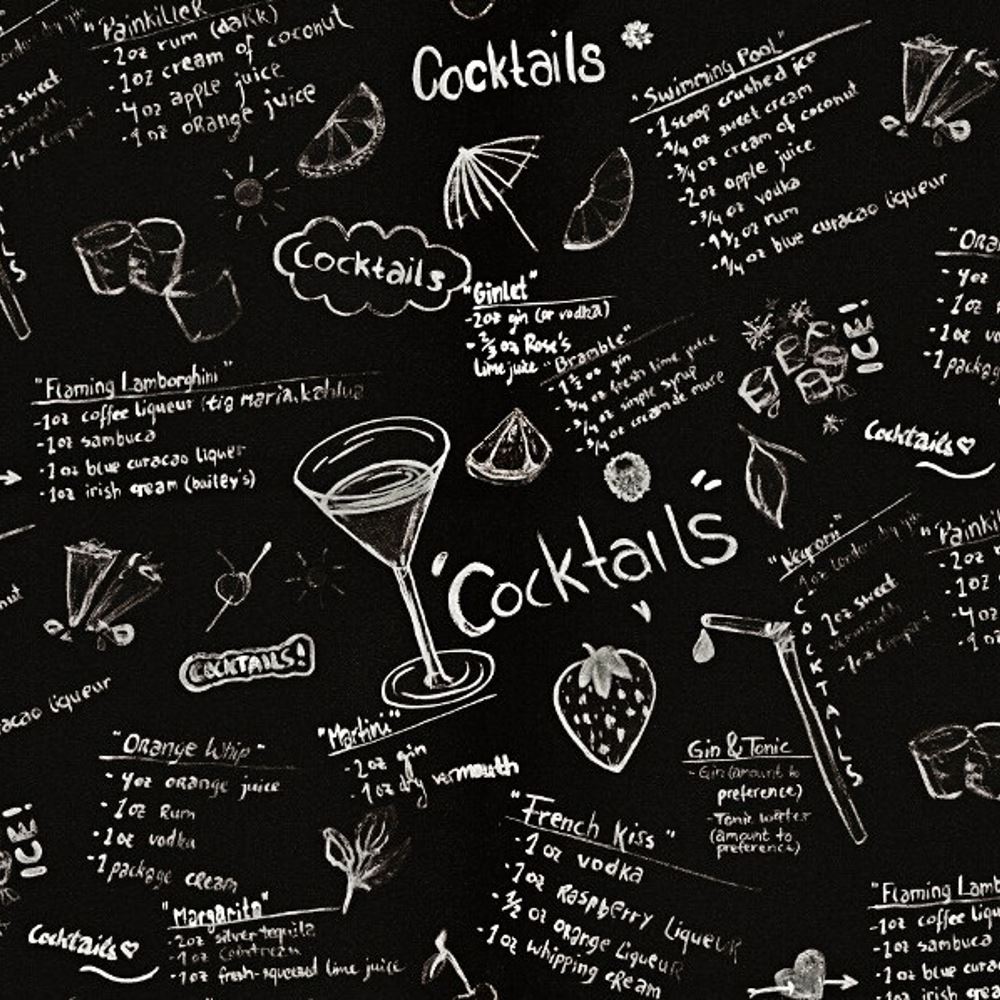 "Painkiller"
-2oz rum (daRk)
-1oz cream of coconut
-4oz apple juice
-1oz oRange juice
oz sweet
Cocktails
"Swimming Pool"
-1 scoop crushed ice
-3/4 oz sweet cream
-3/4 oz cream of coconut
-2oz apple juice
-3/4 oz vodka
-1 1/2 oz rum
-1/4 oz blue curacao liqueur
Cocktails
"Gimlet"
-2oz gin (or vodka)
-2/3 oz Rose's
lime juice
"Bramble"
-1 1/2 oz gin
-3/4 oz fresh lime juice
-1/4 oz simple syrup
-3/4 oz creamde mure
ICE!
"ORa
-4oz
-1oz
-1oz vo
-1packag
"Flaming Lamborghini"
-1oz coffee liqueur (tia maria, kahlua
-1oz sambuca
-1oz blue curacao liquer
-1oz irish cream (bailey's)
Cocktails
"Cocktails"
COCKTAILS!
COCKTAILS
1oz sweet
"Painki
-2oz
-1oz
-4oz
-1
acao liqueur
"Orange Whip"
-4oz oRange juice
-1oz Rum
-1oz vodka
-1package cream
"Martini"
-2oz gin
-1oz dry vermouth
Gin & Tonic
-Gin (amount to
preference)
-Tonic water
(amount to
preference)
"French Kiss"
-1oz vodka
-1oz Raspberry Liqueur
-1/2 oz orange Liqueur
-1oz whipping cream
ICE!
Cocktails
"Margarita"
-2oz silver tequila
-1oz Cointreau
-1oz fresh-squeezed lime juice
"Flaming Lamb
-1oz coffee liq
-1oz sambuca
-1oz blue cura
-1oz irish crea